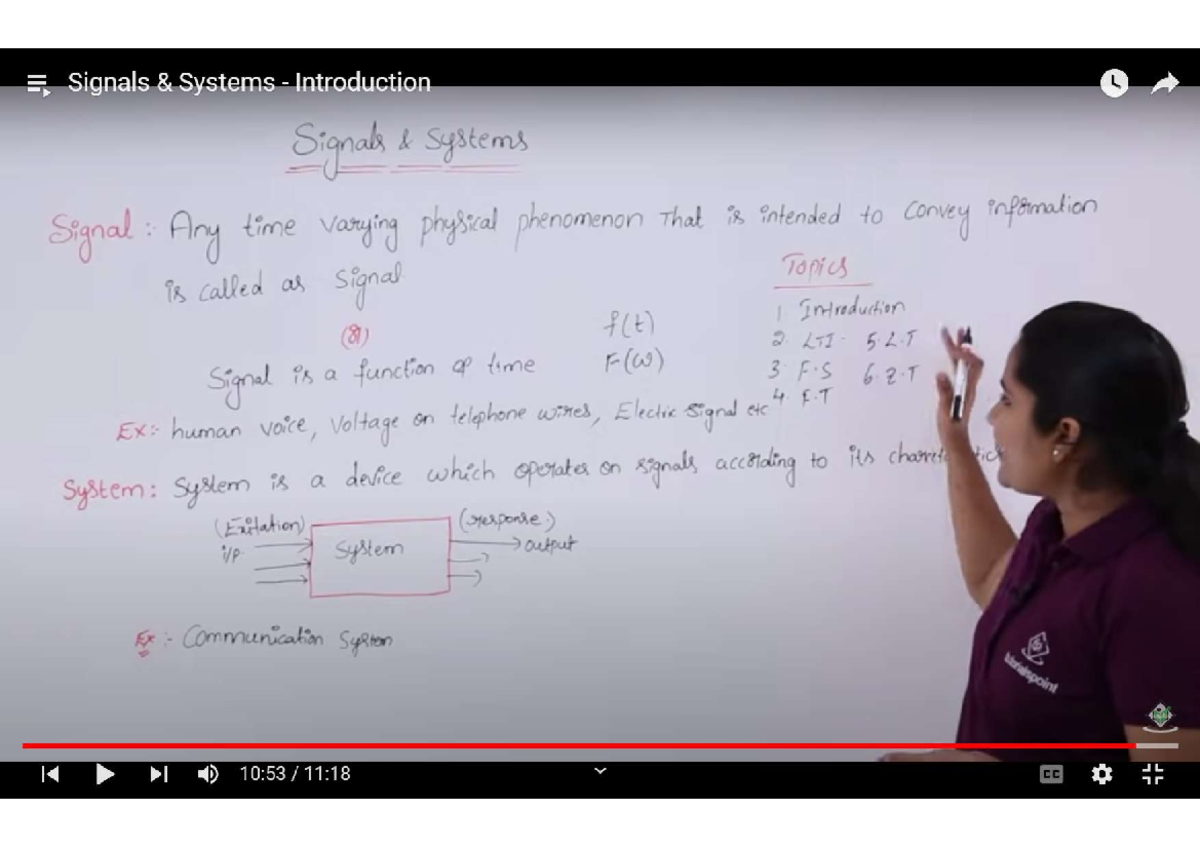 Signals & Systems - Introduction
Signals & Systems
Signal : Any time varying physical phenomenon that is intended to convey information
is called as signal
(or)
Signal is a function of time
f(t)
F(ω)
Topics
1. Introduction
2. LTI. 5. L.T
3. F.S 6. Z.T
4. F.T
Ex:- human voice, Voltage on telephone wires, Electric signal etc
System: System is a device which operates on signals according to its
(Exitation)
i/p
System
(response)
output
Ex :- Communication System
tutorialspoint
10:53 / 11:18
CC